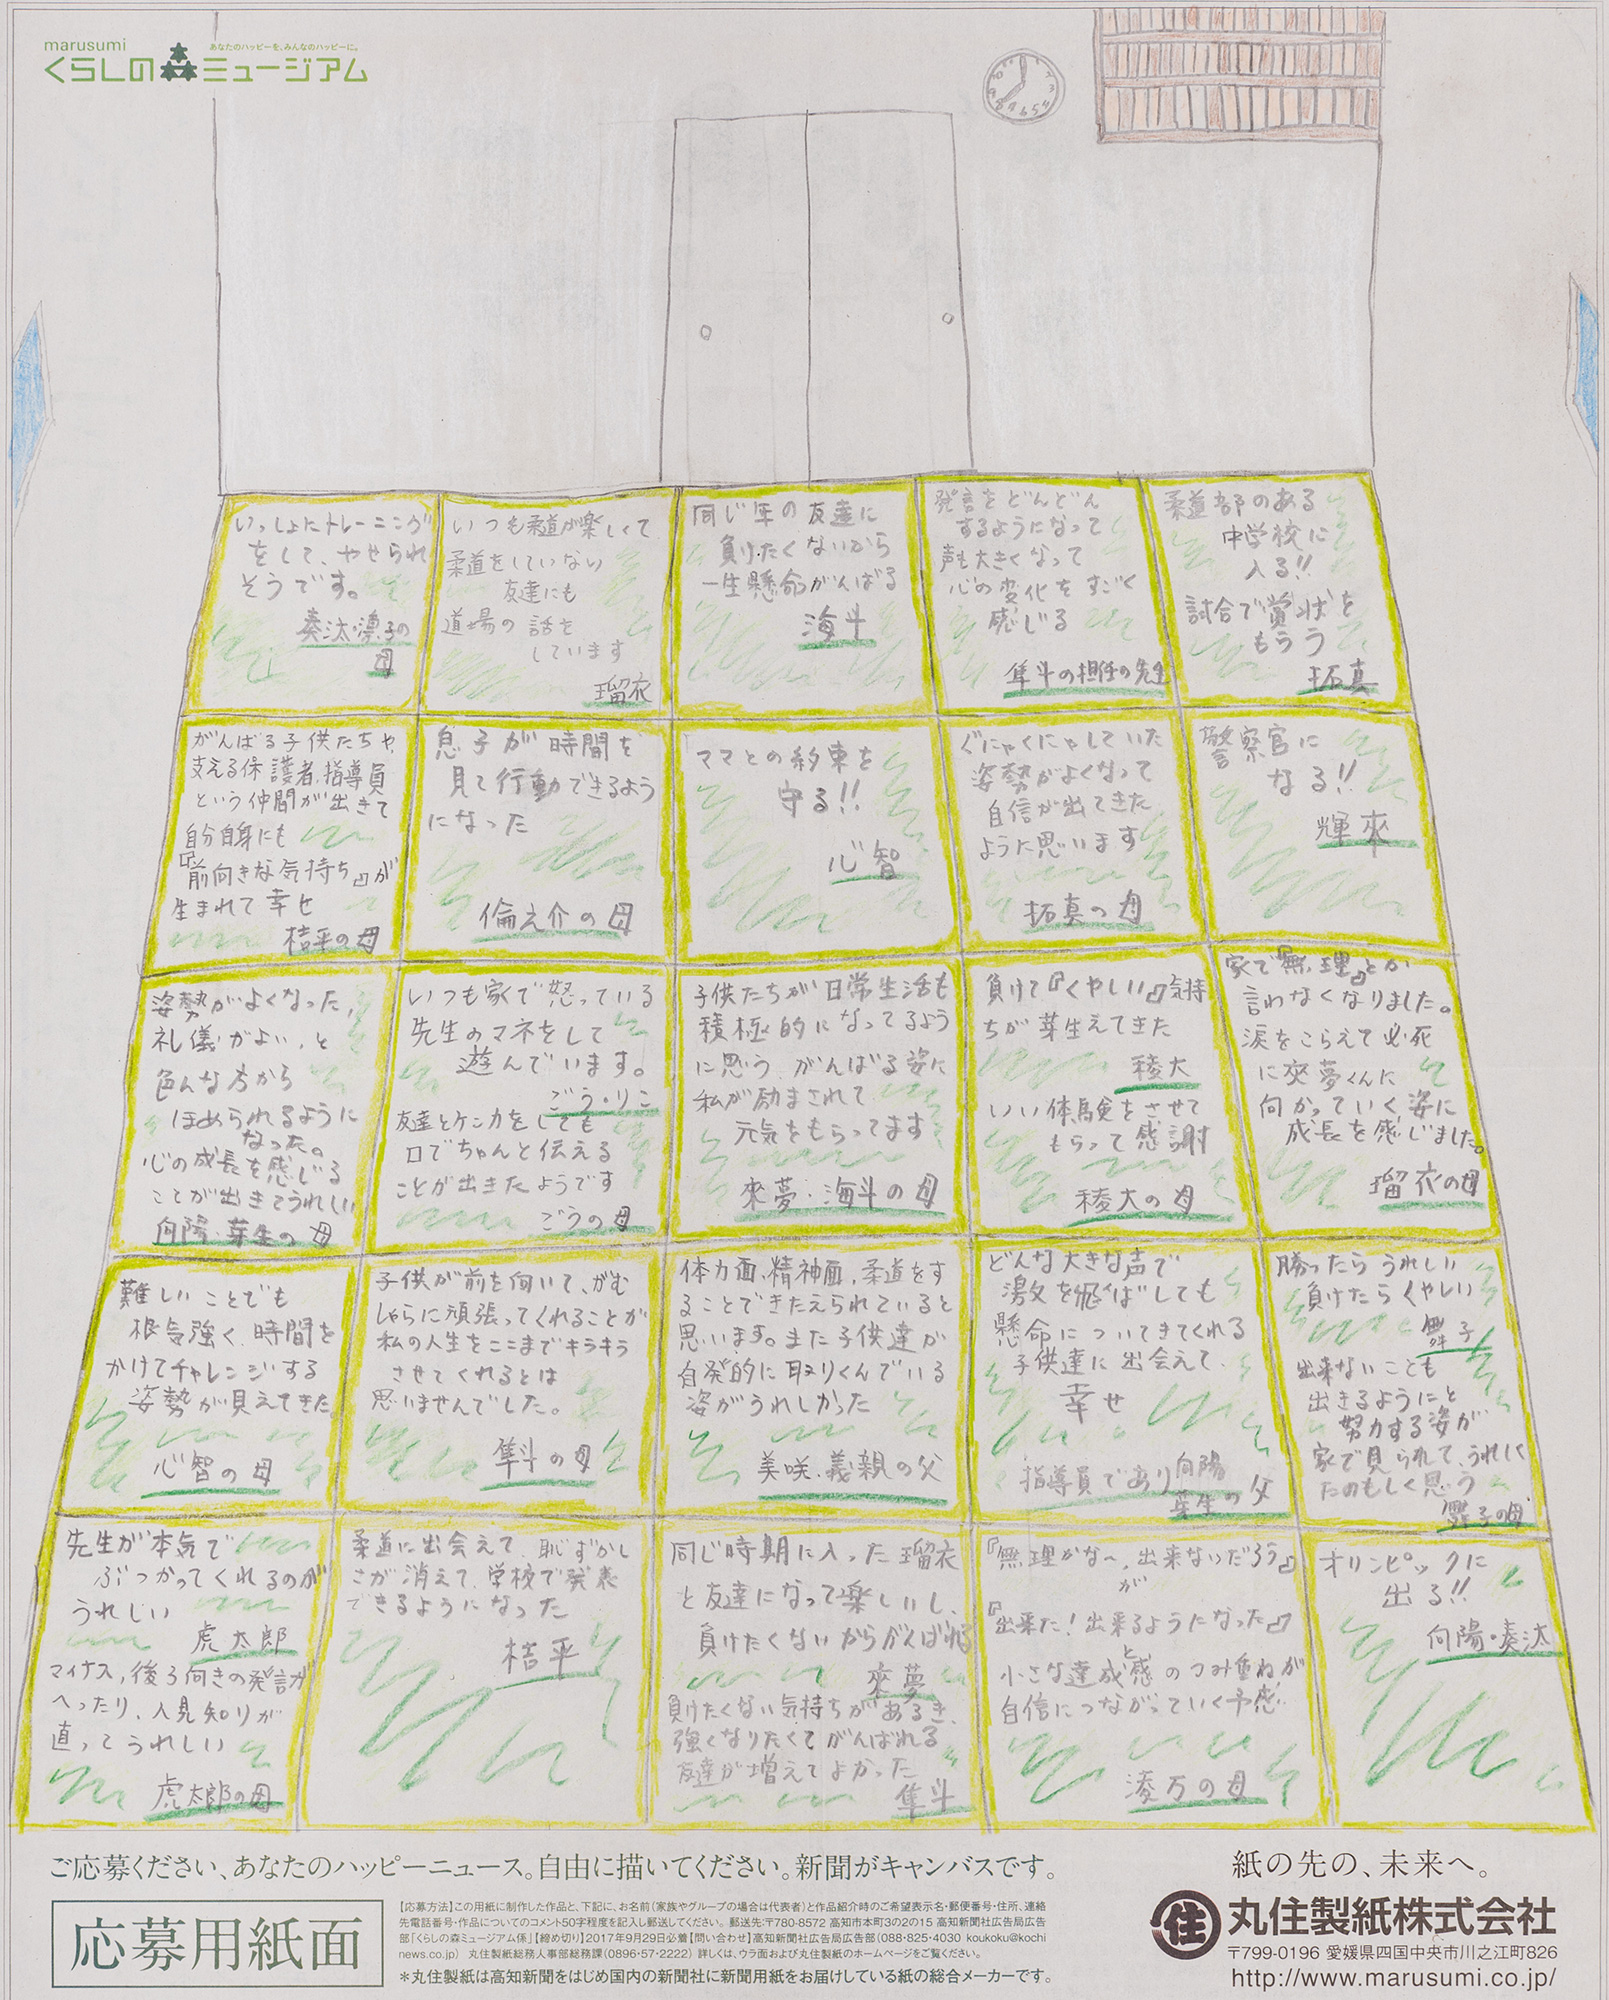 marusumi
あなたのハッピーを、みんなのハッピーに。
くらしの森ミュージアム
いっしょにトレーニング
をして、やせられ
そうです。
奏汰・凛子の
母
いつも柔道が楽しくて
柔道をしていない
友達にも
道場の話を
しています
瑠衣
同じ年の友達に
負けたくないから
一生懸命がんばる
海斗
発言をどんどん
するようになって
声も大きくなって
心の変化をすごく
感じる
隼斗の担任の先生
柔道部のある
中学校に
入る!!
試合で賞状を
もらう
拓真
がんばる子供たちや、
支える保護者、指導員
という仲間が出きて
自分自身にも
『前向きな気持ち』が
生まれて幸せ
桔平の母
息子が時間を
見て行動できるよう
になった
倫之介の母
ママとの約束を
守る!!
心智
ぐにゃぐにゃしていた
姿勢がよくなって
自信が出てきた
ように思います
拓真の母
警察官に
なる!!
輝來
姿勢がよくなった、
礼儀がよい、と
色んな方から
ほめられるように
なった。
心の成長を感じる
ことが出きてうれしい
向陽・芽生の母
いつも家で怒っている
先生のマネをして
遊んでいます。
ごう・りこ
友達とケンカをしても
口でちゃんと伝える
ことが出きたようです
ごうの母
子供たちが日常生活も
積極的になってるよう
に思う がんばる姿に
私が励まされて
元気をもらってます
來夢・海斗の母
負けて『くやしい』気持
ちが芽生えてきた
稜大
いい体験をさせて
もらって感謝
稜大の母
家で『無理』とか
言わなくなりました。
涙をこらえて必死
に來夢くんに
向かっていく姿に
成長を感じました。
瑠衣の母
難しいことでも
根気強く、時間を
かけてチャレンジする
姿勢が見えてきた
心智の母
子供が前を向いて、がむ
しゃらに頑張ってくれることが
私の人生をここまでキラキラ
させてくれるとは
思いませんでした。
隼斗の母
体力面、精神面、柔道をす
ることできたえられていると
思います。また子供達が
自発的に取りくんでいる
姿がうれしかった
美咲・義親の父
どんな大きな声で
激文を飛ばしても
懸命についてきてくれる
子供達に出会えて、
幸せ
指導員であり向陽
芽生の父
勝ったらうれしい
負けたらくやしい
舞子
出来ないことも
出きるようにと
努力する姿が
家で見られて、うれしく
たのもしく思う
舞子の母
先生が本気で
ぶつかってくれるのが
うれしい
虎太郎
マイナス、後ろ向きの発言が
へったり、人見知りが
直ってうれしい
虎太郎の母
柔道に出会えて、恥ずかし
さが消えて、学校で発表
できるようになった
桔平
同じ時期に入った瑠衣
と友達になって楽しいし、
負けたくないからがんばれる
來夢
負けたくない気持ちがあるき、
強くなりたくてがんばれる
友達が増えてよかった
隼斗
『無理かな〜、出来ないだろう』
が
『出来た!出来るようになった』
と
小さな達成感のつみ重ねが
自信につながっていく予感
湊万の母
オリンピックに
出る!!
向陽・奏汰
ご応募ください、あなたのハッピーニュース。自由に描いてください。新聞がキャンバスです。
応募用紙面
【応募方法】この用紙に制作した作品と、下記に、お名前(家族やグループの場合は代表者)と作品紹介時のご希望表示名・郵便番号・住所、連絡
先電話番号・作品についてのコメント50字程度を記入し郵送してください。 郵送先:〒780-8572 高知市本町3の2の15 高知新聞社広告局広告
部「くらしの森ミュージアム係」【締め切り】2017年9月29日必着【問い合わせ】高知新聞社広告局広告部(088・825・4030 koukoku@kochi
news.co.jp) 丸住製紙総務人事部総務課(0896・57・2222) 詳しくは、ウラ面および丸住製紙のホームページをご覧ください。
*丸住製紙は高知新聞をはじめ国内の新聞社に新聞用紙をお届けしている紙の総合メーカーです。
紙の先の、未来へ。
住 丸住製紙株式会社
〒799-0196 愛媛県四国中央市川之江町826
http://www.marusumi.co.jp/